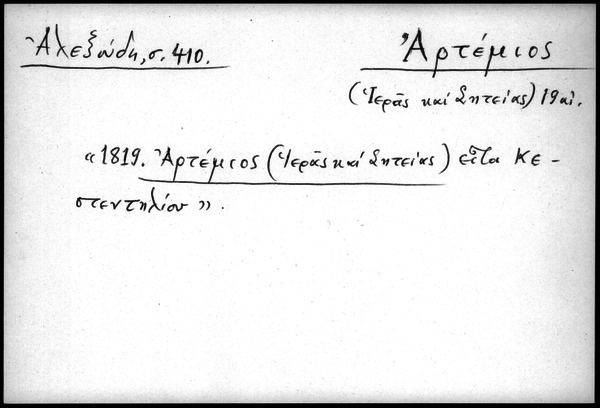 Ἀλεξούδη, σ. 410.
Ἀρτέμιος
(Ἱερᾶς καί Σητείας) 19 αἰ.
«1819. Ἀρτέμιος (Ἱερᾶς καί Σητείας) εἶτα Κε-
στεντηλίου».